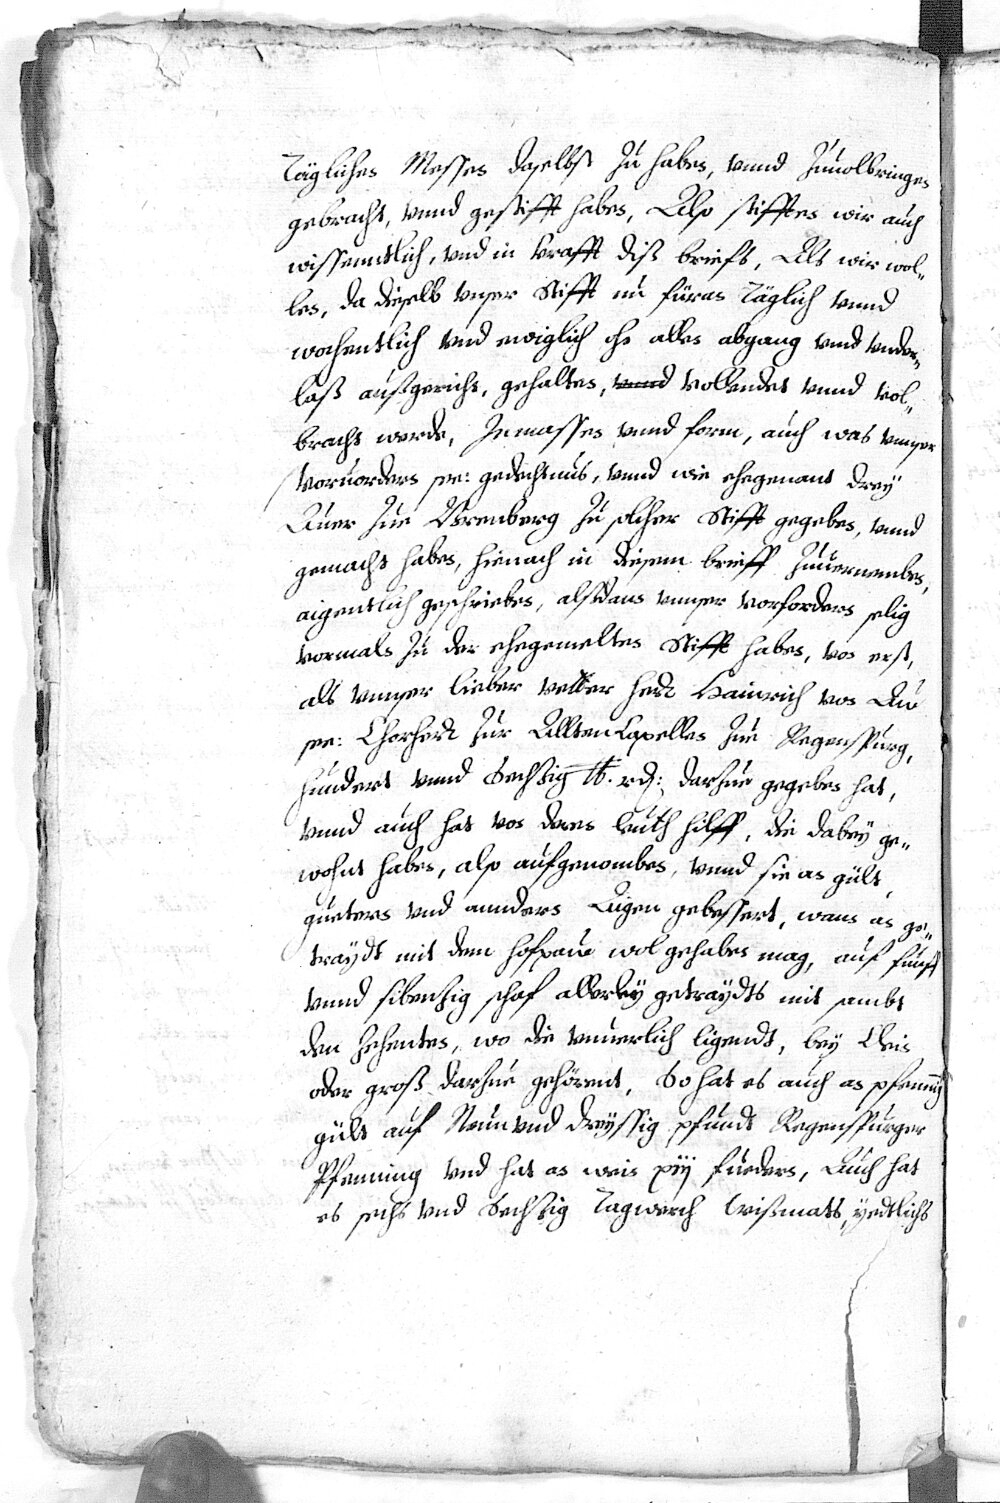 Täglichen Messen daselbst zu haben, vnnd zuuolbringen
gebracht, vnnd gestifft haben, Also stifften wir auch
wissenntlich, vnd in krafft diß brieffs, Als wir wol„
len, da dieselb vnser Stifft nu füran Täglich vnnd
wochentlich vnd ewiglich ohn allen abgang vnnd vnder„
laß außgericht, gehalten, vnnd vollendet vnnd vol„
bracht werde, Inmassen vnnd form, auch was vnnser
voruordern see: gedechtnus, vnnd wie ehegenant drey
Auer zue Brenberg zu solcher Stifft gegeben, vnnd
gemacht haben, hienach in diesem brieff zuuernemben,
aigentlich geschrieben, alßdann vnnser vorfordern selig
vormals zu der ehegemelten Stifft haben, von erst,
als vnnser lieber vetter herr Hainrich von Au
see: Chorherr zur Allten Capellen zue Regenspurg,
hundert vnnd Sechzig lb. rdn: darzue gegeben hat,
vnnd auch hat von deren leuth hilff, die dabey ge„
wohnt haben, also aufgenomben, vnnd sie an gült,
guetern vnd anndern Aigen gebessert, wann an ge„
traydt mit dem hofpaue wol gehaben mag, auf fünff
vnnd sibenzig schaf allerley getraydts mit sambt
den zehenten, wo die ligendt, bey Clein
oder groß darzue gehörent, So hat es auch an pfennig
gült auf Neun vnd dreyssig pfundt Regenspurger
Pfenning vnd hat an wein xij fuedern, Auch hat
es sechs vnd Sechzig Tagwerch wißmats, yedtlichs